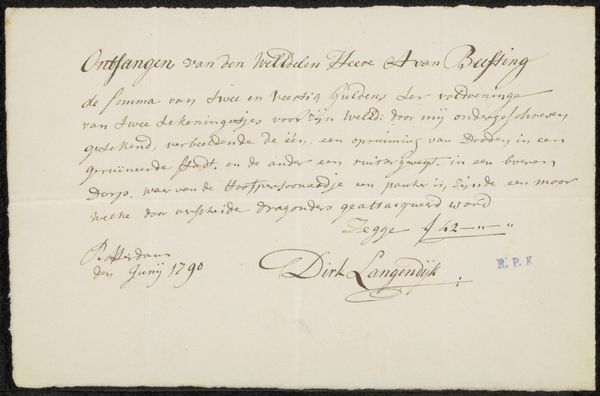 Ontfangen van den WelEdelen Heere A van Bussing
de somma van twee en veertig Guldens ter voldoeninge
van twee tekeningetjes voor zijn WelEd: door mij ondergeschreven
getekend, verbeeldende de één, een opruiming van Dooden in een
geruineerde Stadt, en de ander een ruiter gevegt, in een boeren
Dorp, waar van de Hooftpersoonaadje een pauker is, zijnde een moor
welke door verscheide dragonders geattacqueerd word
Zegge ƒ 42 — " — "
Rotterdam
den Junij 1790
Dirk Langendijk
R. P. K